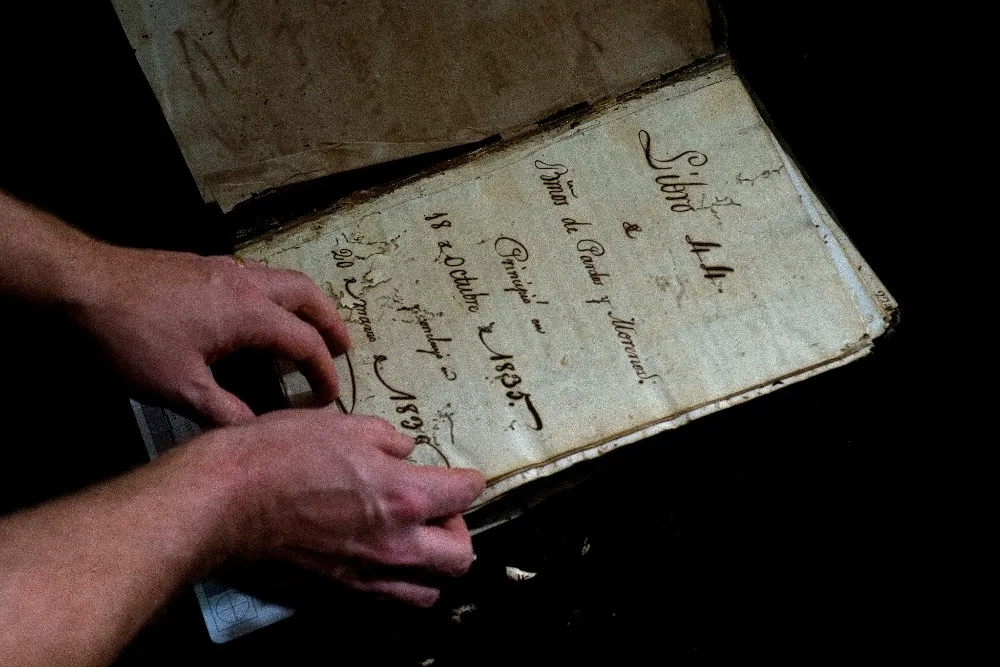 Libro 44.
de
Bmos de Pardos y Morenos.
Principió en
18 de Octubre de 1835.
y concluyó en
20 de marzo de 1838